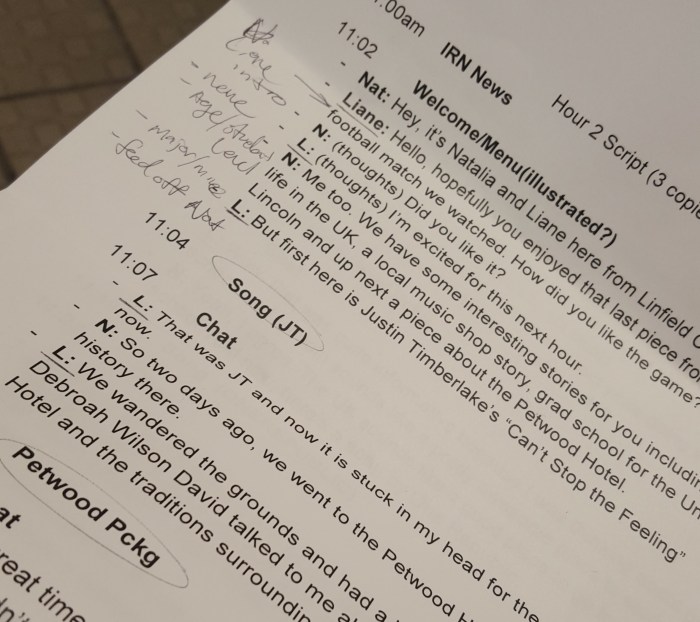 Hour 2 Script (3 copie
:00am IRN News
11:02 Welcome/Menu(illustrated?)
- Nat: Hey, it's Natalia and Liane here from Linfield C
- Liane: Hello, hopefully you enjoyed that last piece from
football match we watched. How did you like the game?
- N: (thoughts) Did you like it?
- L: (thoughts) I'm excited for this next hour.
N: Me too. We have some interesting stories for you includin
life in the UK, a local music shop story, grad school for the Un
Lincoln and up next a piece about the Petwood Hotel.
L: But first here is Justin Timberlake's "Can't Stop the Feeling"
intro
- Age/student
level
- feed off Nat
11:04 Song (JT)
11:07 Chat
- L: That was JT and now it is stuck in my head for the
now.
- N: So two days ago, we went to the Petwood H
history there.
- L: We wandered the grounds and had a
Debroah Wilson David talked to me a
Hotel and the traditions surroundin
Petwood Pckg
at
reat time